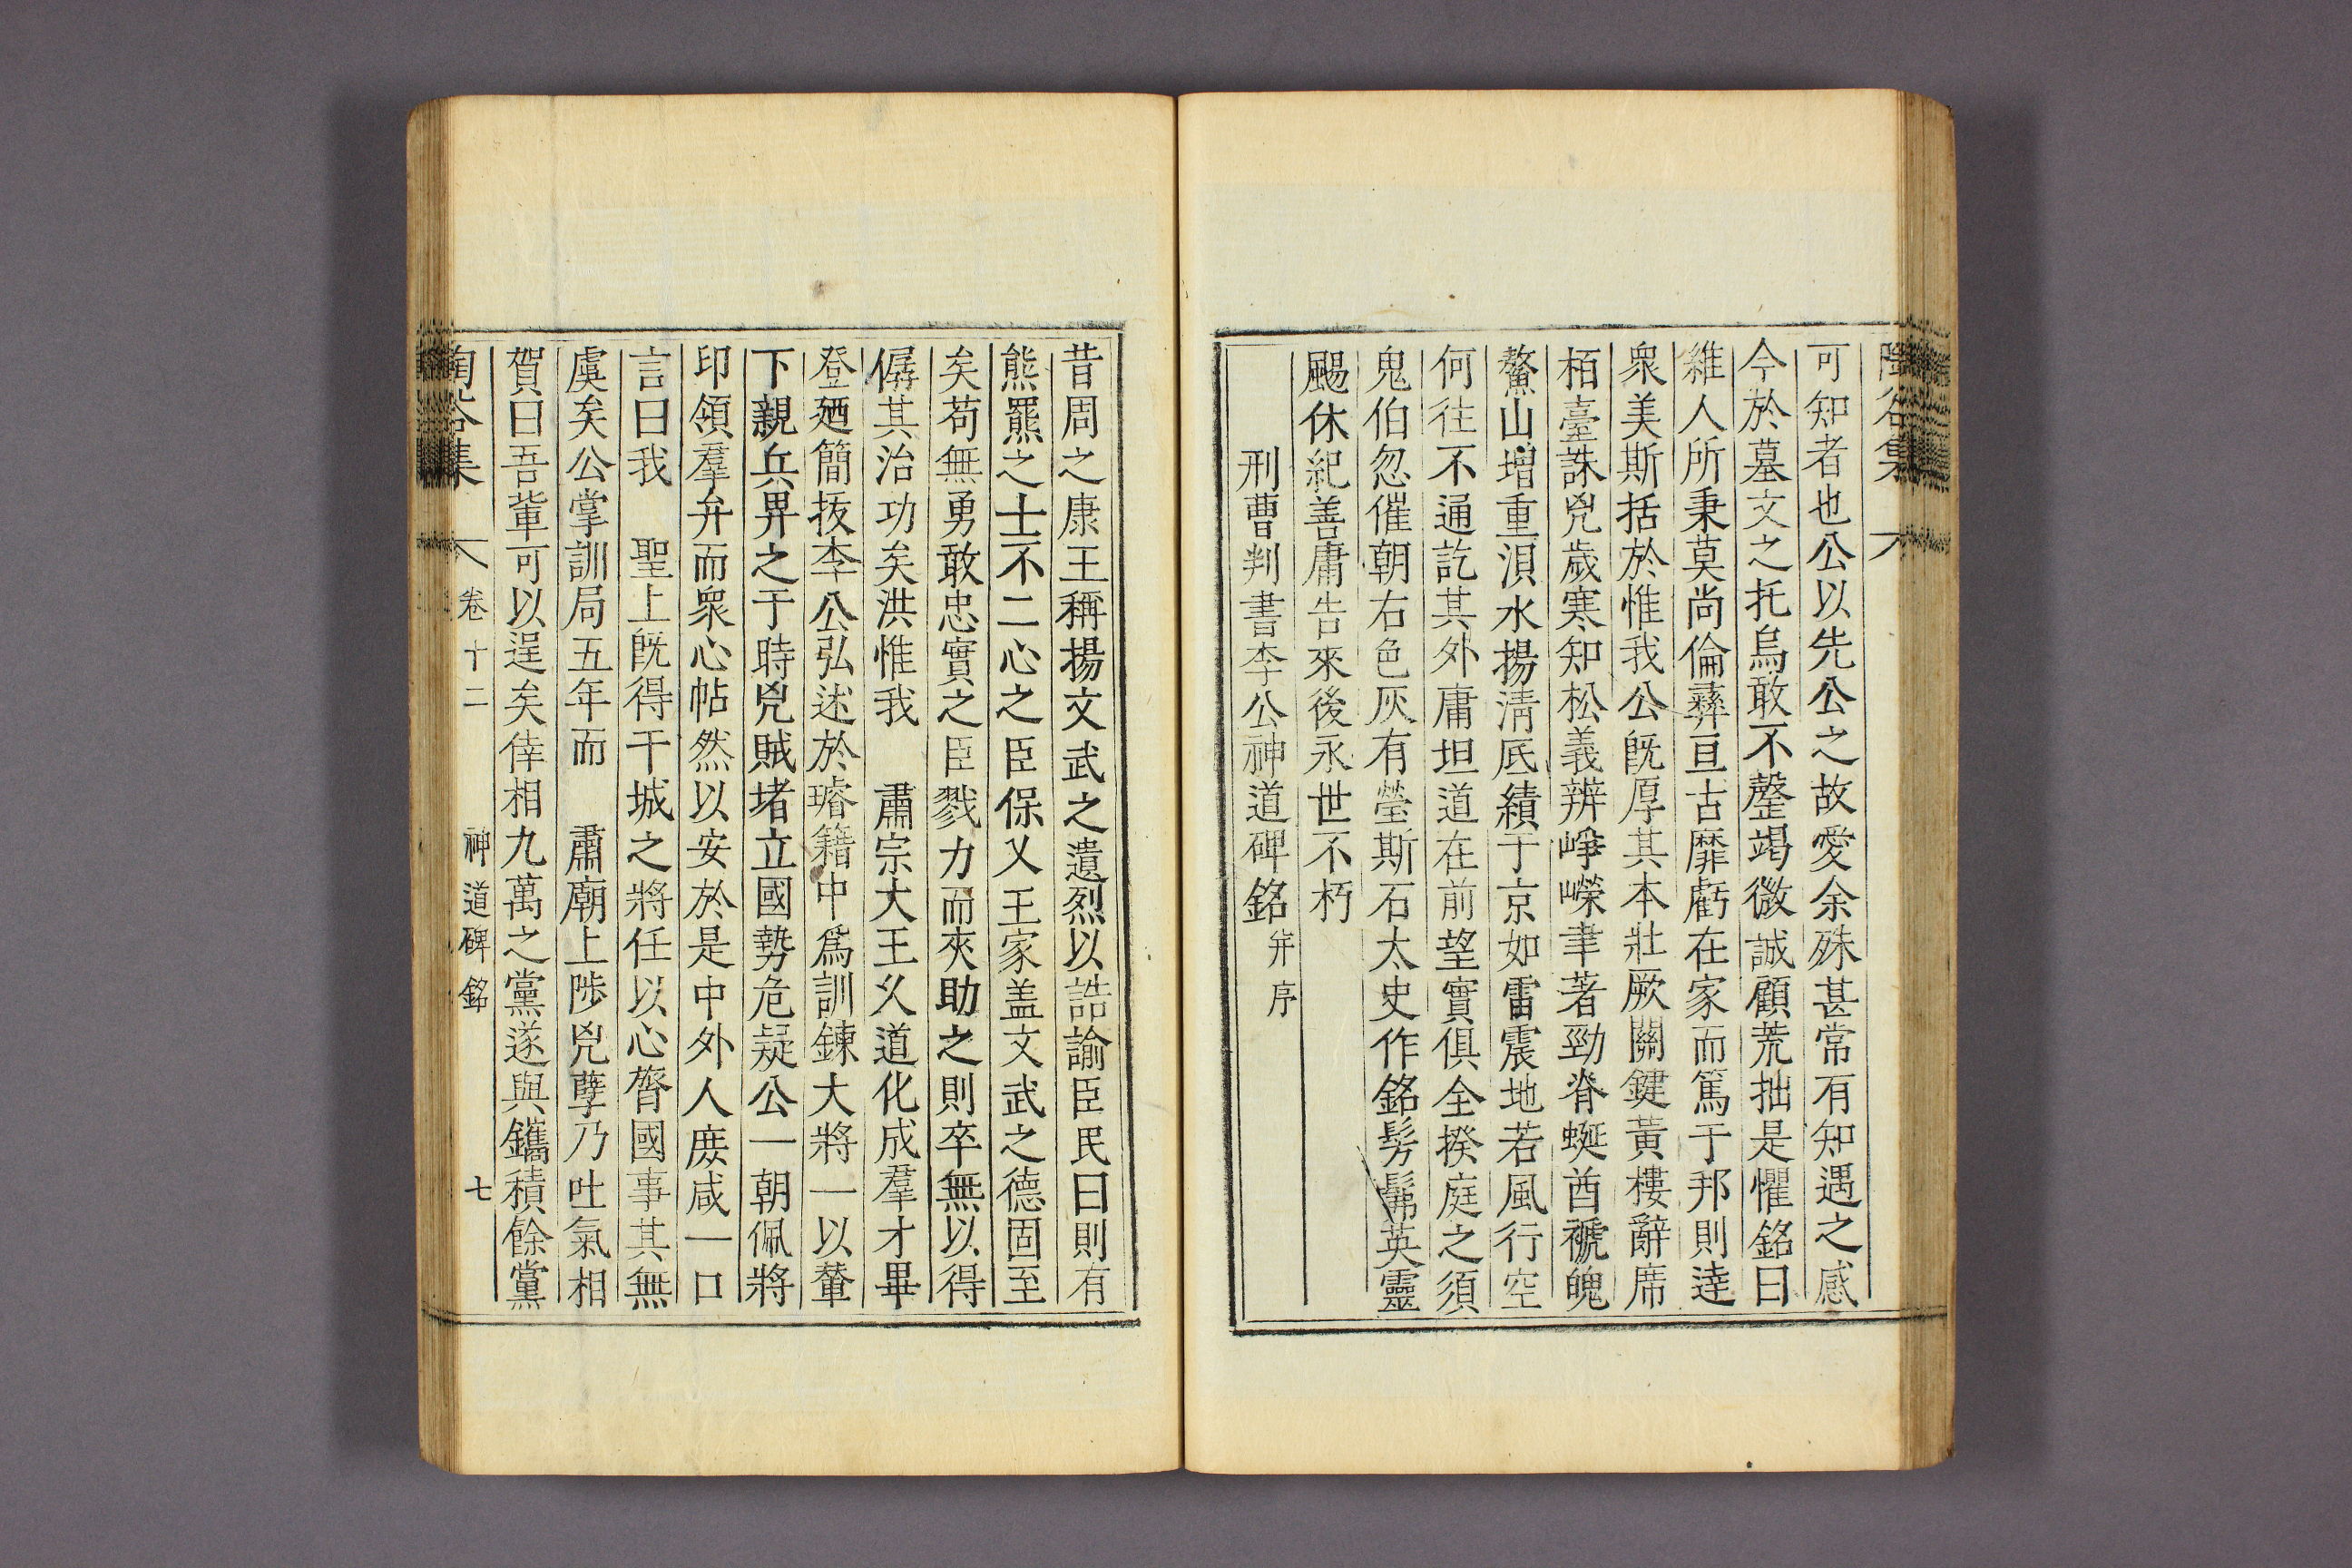 陶谷集
可知者也公以先公之故愛余殊甚常有知遇之感
今於墓文之托烏敢不罄竭微誠顧荒拙是懼銘曰
維人所秉莫尚倫彝亘古靡虧在家而篤于邦則達
衆美斯括於惟我公旣厚其本壯厥關鍵黃樓辭席
栢臺誅兇歲寒知松義辨崢嶸聿著勁脊蜒酋褫魄
鰲山增重浿水揚淸厎績于京如雷震地若風行空
何往不通訖其外庸坦道在前望實俱全揆庭之須
鬼伯忽催朝右色灰有瑩斯石太史作銘髣髴英靈
颺休紀善庸告來後永世不朽
刑曹判書李公神道碑銘幷序
昔周之康王稱揚文武之遺烈以誥諭臣民曰則有
熊羆之士不二心之臣保乂王家盖文武之德固至
矣苟無勇敢忠實之臣戮力而夾助之則卒無以得
僝其治功矣洪惟我 肅宗大王久道化成羣才畢
登廼簡拔李公弘述於璿籍中爲訓鍊大將一以輦
下親兵畀之于時兇賊堵立國勢危疑公一朝佩將
印領羣弁而衆心帖然以安於是中外人庶咸一口
言曰我 聖上旣得干城之將任以心膂國事其無
虞矣公掌訓局五年而 肅廟上陟兇孽乃吐氣相
賀曰吾輩可以逞矣倖相九萬之黨遂與鑴積餘黨
陶谷集 卷十二 神道碑銘 七